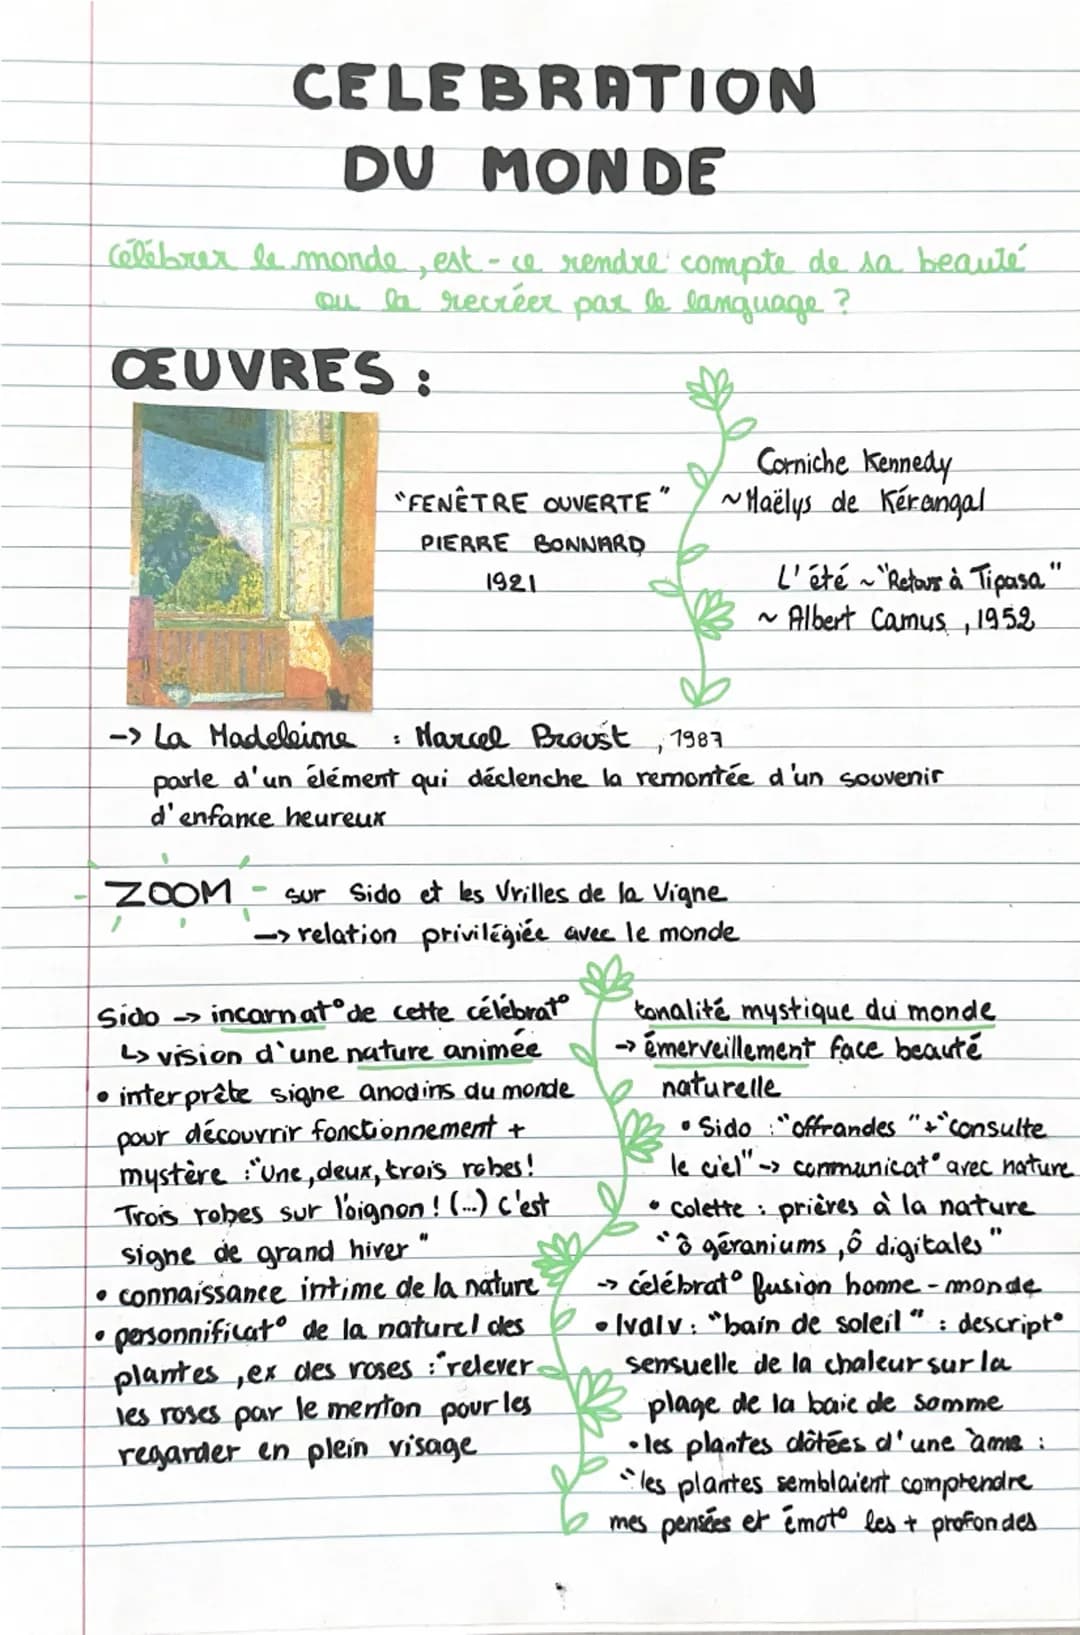 CELEBRATION
DU MONDE
Célébrer le monde, est-ce rendre compte de sa beauté
ou la recréer par le language ?
ŒUVRES :
"FENÊTRE OUVERTE"
PIERRE BONNARD
1921
Corniche Kennedy
~ Maëlys de Kérangal
L'été ~ "Retour à Tipasa"
~ Albert Camus, 1952
-> La Madeleine : Marcel Proust, 1987
parle d'un élément qui déclenche la remontée d'un souvenir
d'enfance heureux
ZOOM sur Sido et les Vrilles de la Vigne
-> relation privilégiée avec le monde
Sido -> incarnat° de cette célébrat°
↳ vision d'une nature animée
• interprète signe anodins du monde
pour découvrir fonctionnement +
mystère : "Une, deux, trois robes !
Trois robes sur l'oignon ! (...) c'est
signe de grand hiver"
• connaissance intime de la nature
• personnificat° de la nature/ des
plantes, ex des roses : "relever
les roses par le menton pour les
regarder en plein visage
tonalité mystique du monde
-> émerveillement face beauté
naturelle
• Sido : "offrandes" + "consulte
le ciel" -> communicat° avec nature
• Colette : prières à la nature
"ô géraniums, ô digitales"
-> célébrat° fusion homme - monde
• lvalv : "bain de soleil" : descript°
sensuelle de la chaleur sur la
plage de la baie de somme
• les plantes dôtées d'une âme :
"les plantes semblaient comprendre
mes pensées et émot° les + profondes